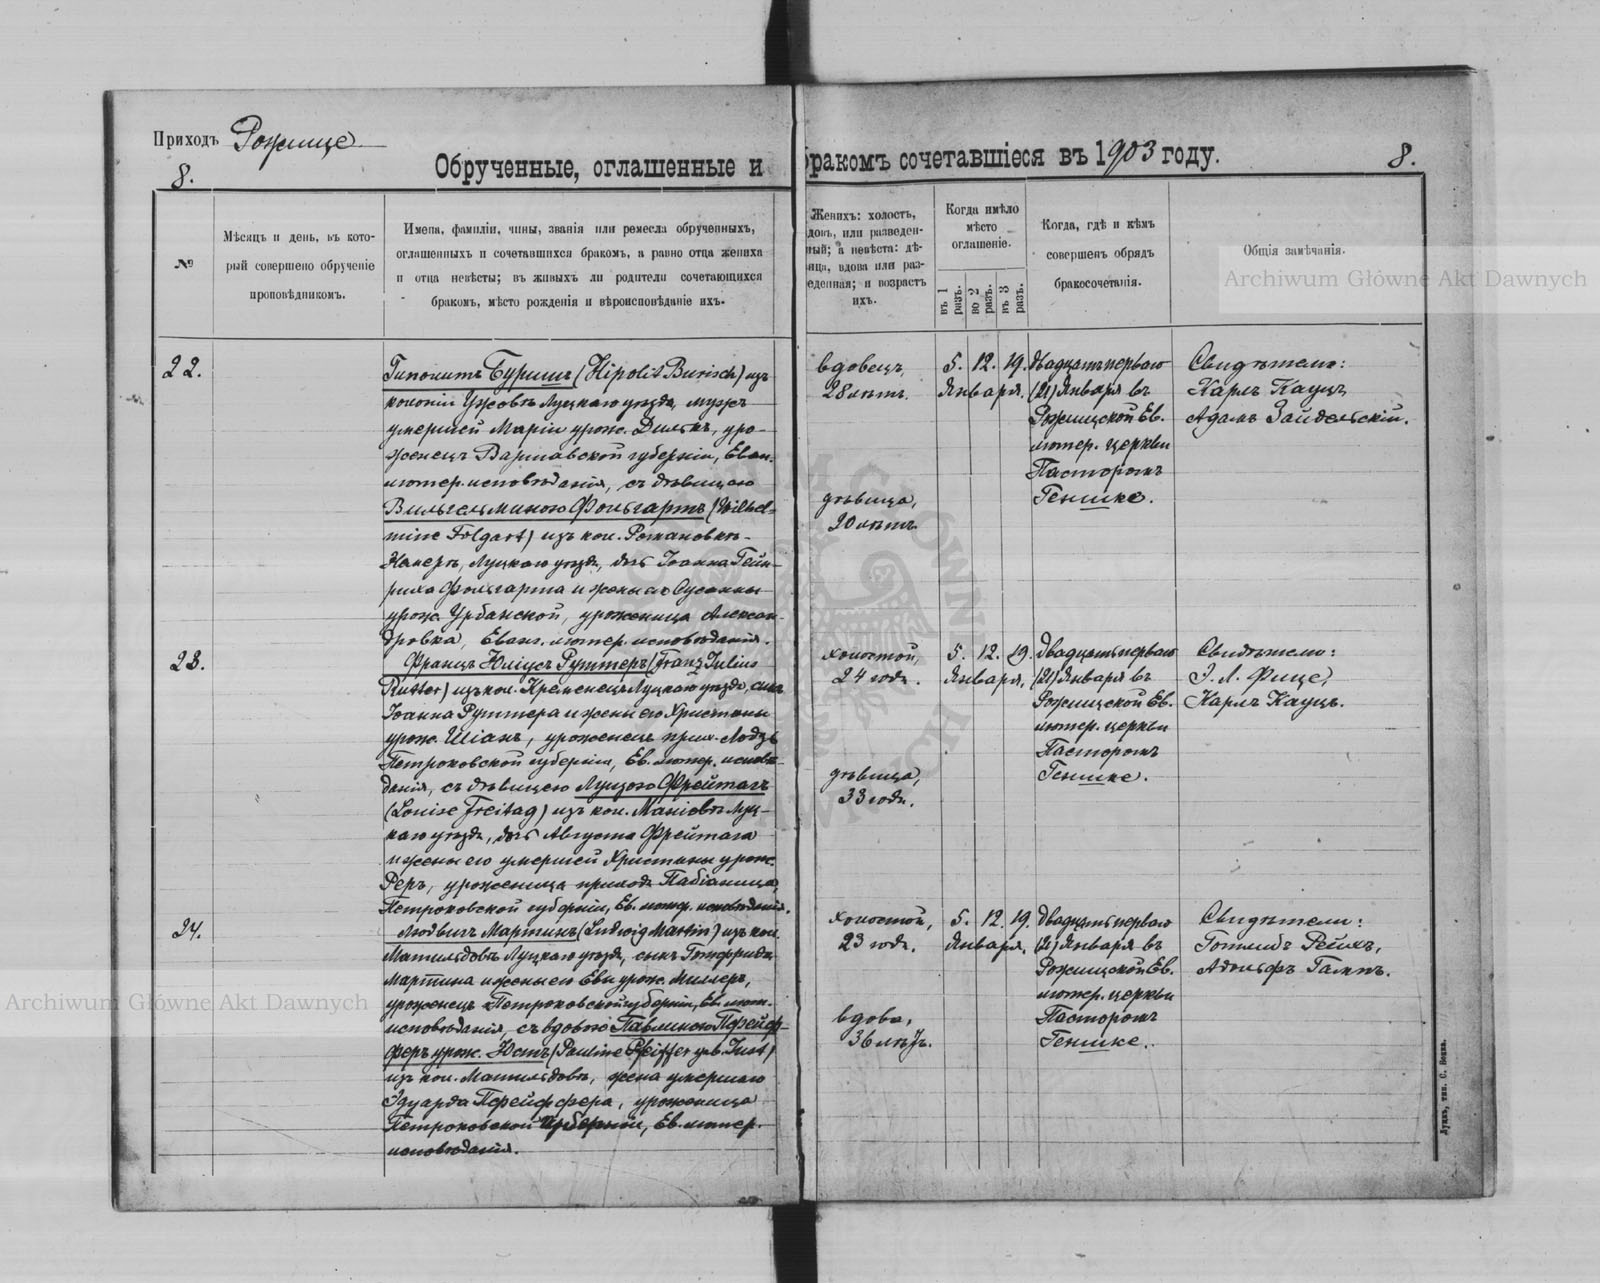 Приходъ Рожище
8.
Обрученные, оглашенные и бракомъ сочетавшіеся въ 1903 году.
8.
№
Мѣсяцъ и день, въ кото-
рый совершено обрученіе
проповѣдникомъ.
Имена, фамиліи, чины, званія или ремесла обрученныхъ,
оглашенныхъ и сочетавшихся бракомъ, а равно отца жениха
и отца невѣсты; въ живыхъ ли родители сочетающихся
бракомъ, мѣсто рожденія и вѣроисповѣданіе ихъ.
Женихъ: холостъ,
довъ, или разведен-
ный; а невѣста: дѣ-
ица, вдова или раз-
еденная; и возрастъ
ихъ.
Когда имѣло
мѣсто
оглашеніе.
въ 1 разъ.
во 2 разъ.
въ 3 разъ.
Когда, гдѣ и кѣмъ
совершенъ обрядъ
бракосочетанія.
Общія замѣчанія.
Archiwum Główne Akt Dawnych
22.
Гипополитъ Буришъ (Hipolit Burisch) изъ
колоніи Ужовъ Луцкаго уѣзда, мужъ
умершей Маріи урож. Дильхъ, уро-
женецъ Варшавской губерніи, Еван.
лютер. исповѣданія, съ дѣвицею
Вильгельминою Фольгартъ (Wilhel-
mine Folgart) изъ кол. Романовки-
Луцкаго уѣзда, дочь Іоанна Гейн-
риха Фольгарта и жены его Сусанны
урож. Урбанской, уроженица Алексан-
дровка, Еванг. лютер. исповѣданія.
вдовецъ,
28 лѣтъ.
дѣвица,
20 лѣтъ
5. 12. 19.
Января.
Двадцатьперваго
(21) Января въ
Рожищской Ев.
лютер. церкви
Пасторомъ
Генишке.
Свидѣтели:
Карлъ Кауцъ,
Адамъ Зайдельскій.
23.
Францъ Юліусъ Руттеръ (Franz Julius
Rutter) изъ кол. Кременецъ Луцкаго уѣзда, сынъ
Іоанна Руттера и жены его Христины
урож. Шіанъ, уроженецъ прих. Лодзь
Петроковской губерніи, Ев. лютер. исповѣ-
данія, съ дѣвицею Луизою Фрейтагъ
(Louise Freitag) изъ кол. Маніовъ Луц-
каго уѣзда, дочь Августа Фрейтага
и жены его умершей Христины урож.
Реръ, уроженица прихода Пабіаница,
Петроковской губерніи, Ев. лютер. исповѣданія.
холостой,
24 года.
дѣвица,
33 года.
5. 12. 19.
Января.
Двадцатьперваго
(21) Января въ
Рожищской Ев.
лютер. церкви
Пасторомъ
Генишке.
Свидѣтели:
Э. Л. Фице,
Карлъ Кауцъ.
24.
Людвигъ Мартинъ (Ludwig Martin) изъ кол.
Матильдовъ Луцкаго уѣзда, сынъ Готфрида
Мартина и жены его Евы урож. Миллеръ,
уроженецъ Петроковской губерніи, Ев. лют.
исповѣданія, съ вдовою Павлиною Пфейф-
феръ урож. Юстъ (Pauline Pfeiffer geb. Just)
изъ кол. Матильдовъ, жена умершаго
Эдуарда Пфейффера, уроженица
Петроковской губерніи, Ев. лютер.
исповѣданія.
холостой,
23 года.
вдова,
36 лѣтъ.
5. 12. 19.
Января.
Двадцатьперваго
(21) Января въ
Рожищской Ев.
лютер. церкви
Пасторомъ
Генишке.
Свидѣтели:
Готлибъ Рейхъ,
Адольфъ Гампъ.
Archiwum Główne Akt Dawnych